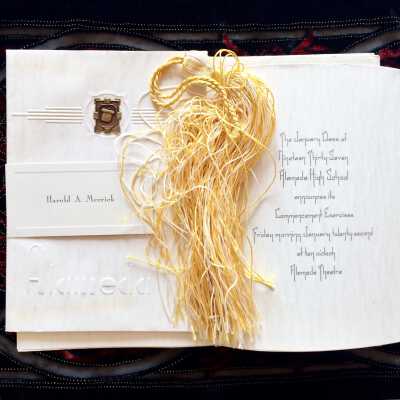 Harold A. Merrick
Alameda
The January Class of
Nineteen Thirty-Seven
Alameda High School
announces its
Commencement Exercises
Friday morning, January twenty-second
at ten o'clock
Alameda Theatre